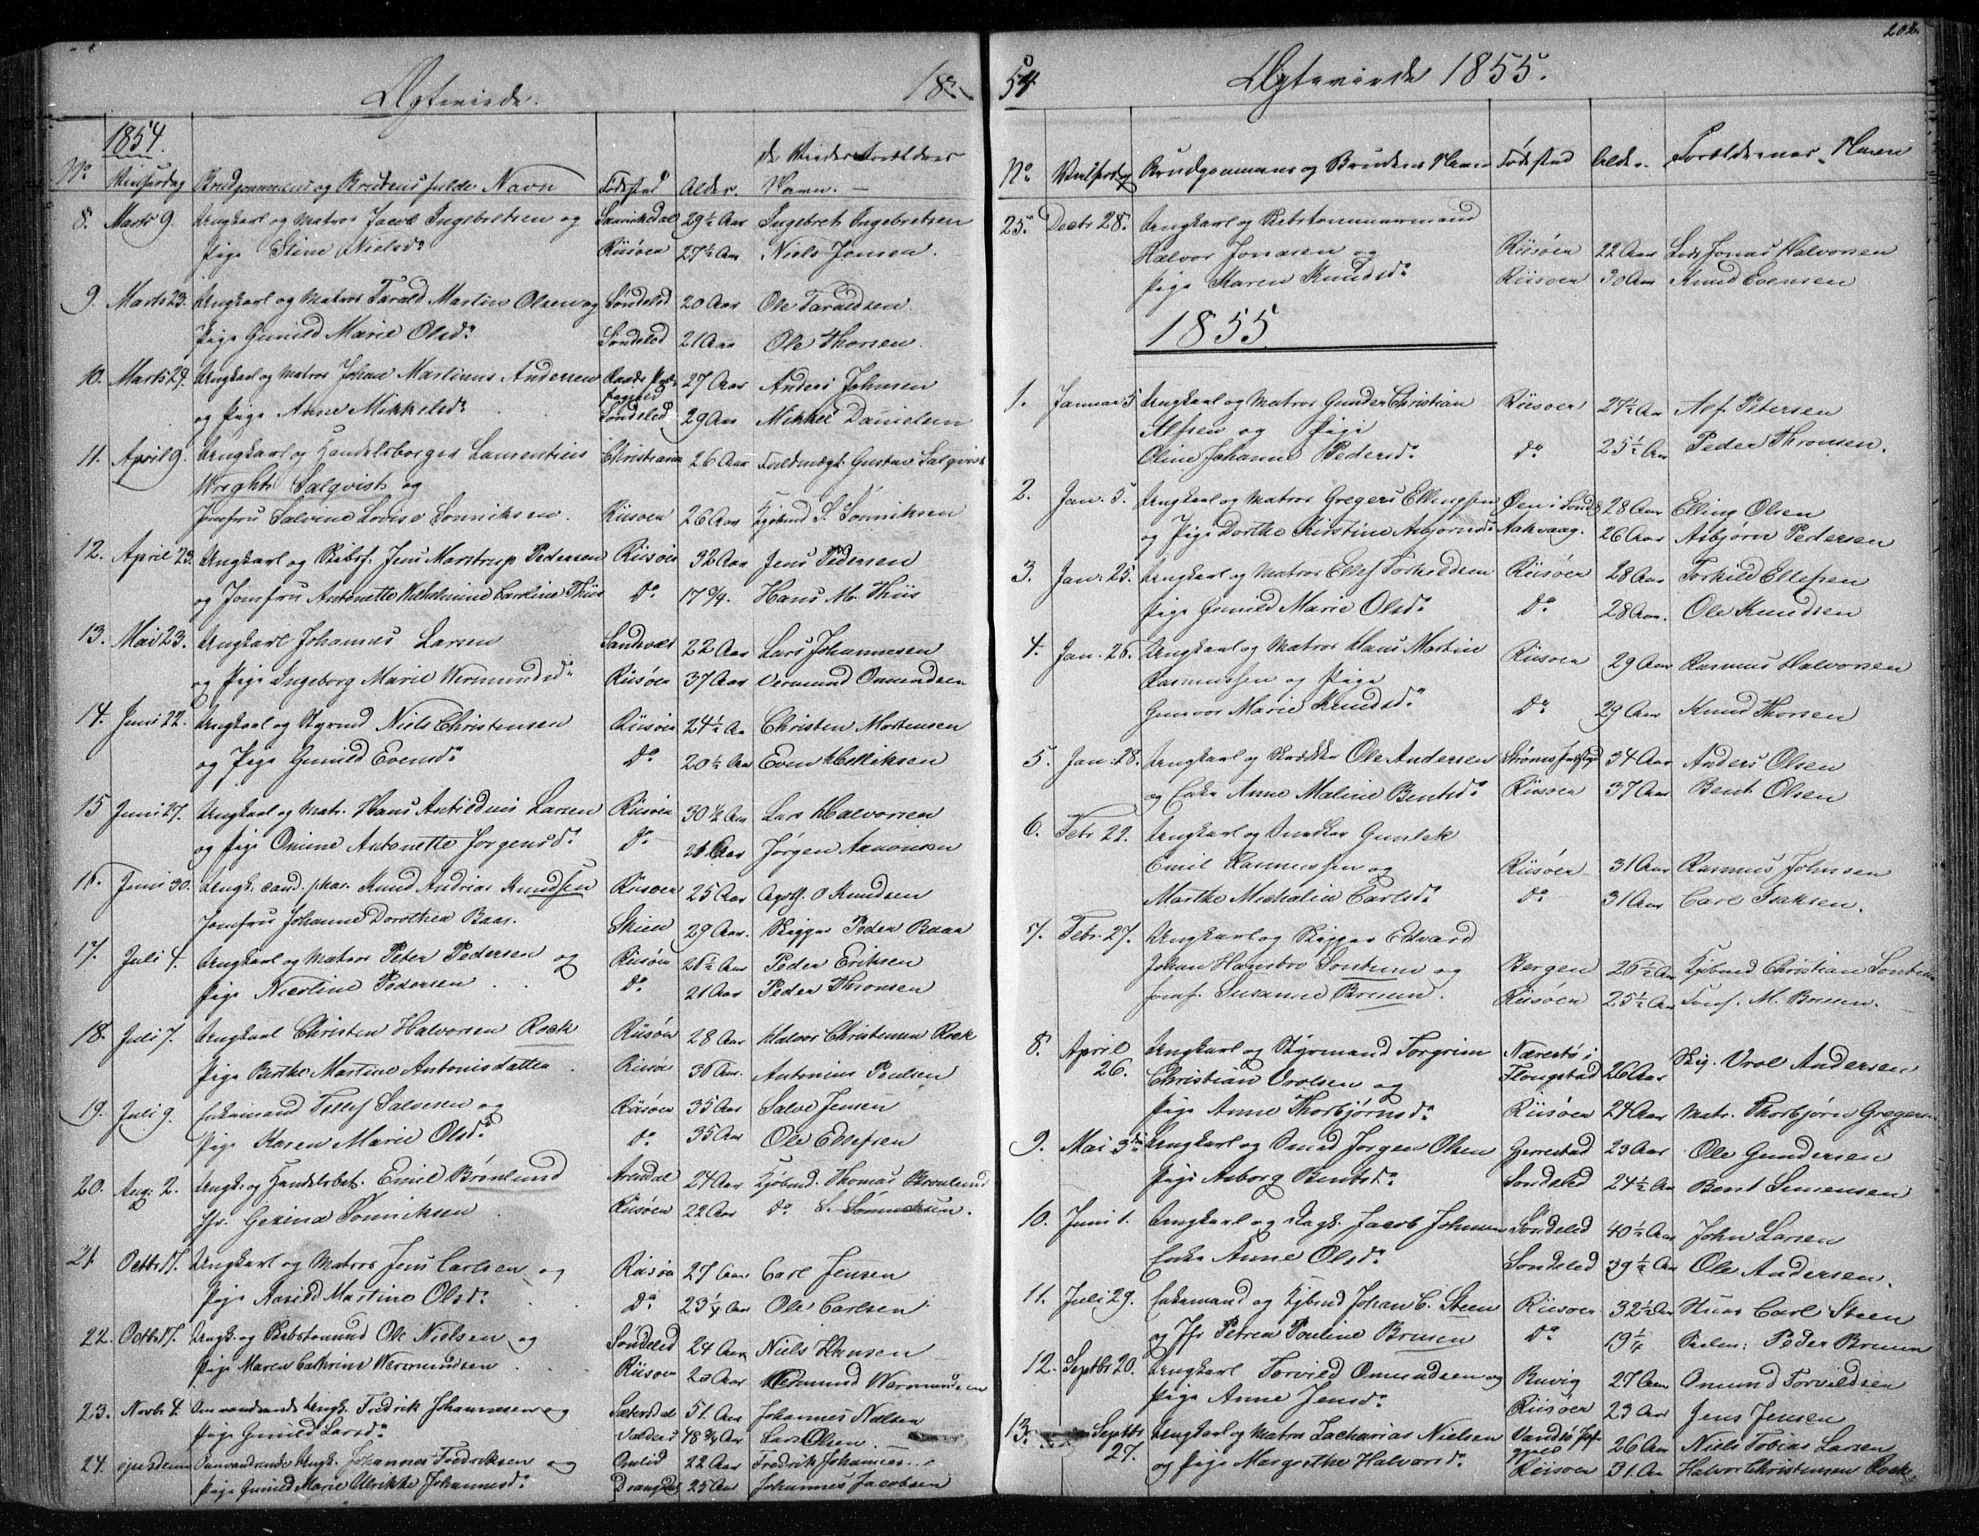 Ægteviede. 18
1854.
No Vielsesdag Brudgommens og Brudens fulde Navn Fødested Alder. de Viedes Forældres Navn. —
8. Marts 9. Ungkarl og Matros Jacob Ingebretsen og 29½ Aar Ingebret Ingebretsen
Pige Stine Nielsd. Riisøer 27½ Aar Niels Jensen.
9. Marts 23. Ungkarl og Matros Tarald Martin Olsen og Søndeled 20 Aar Ole Taraldsen.
Pige Gunild Marie Olsd. Søndeled 21 Aar Ole Thorsen.
10. Marts 29. Ungkarl og Matros Johan Martinus Andersen 27 Aar Anders Johnsen
og Pige Anne Mikkelsd. Søndeled 29 Aar Mikkel Danielsen
11. April 9. Ungkarl og Handelsborger Laurentius Christiania 26 Aar Fuldmægt. Gustav Salqvist
Wright Salqvist og
Jomfru Salvine Lovise Sønniksen. Riisøer 26 Aar Kjøbmd S. Sønniksen
12. April 23. Ungkarl og Skibsf. Jens Marstrup Pedersen Riisøer 32 Aar Jens Pedersen
og Jomfru Antonette Wilhelmine Caroline Thiis Do 17 ¾. Hans M. Thiis
13. Mai 23. Ungkarl Johannes Larsen 22 Aar Lars Johannesen
og Pige Ingeborg Marie Wermundsd. Riisøer 37 Aar Vermund Omundsen
14. Juni 22. Ungkarl og Styrmd Niels Christensen Riisøer 24½ Aar Christen Mortensen
og Pige Gunild Evensd. Do 20½ Aar Even
15 Juni 27. Ungkarl og Matr. Hans Larsen Riisøer 30 ½ Aar Lars Halvorsen
og Pige Onine Antonette Jørgensd. Do 21 Aar Jørgen Aanonsen
16. Juni 30. Ungk. cand. phar. Knud Andrias Knudsen Riisøer 25 Aar O Knudsen
Jomfru Johanne Dorothea Baar. Skien 29 Aar. Skipper Peder Baar
17. Juli 4. Ungkarl og Matros Peter Pedersen og Riisøer 21½ Aar Peder Eriksen
Pige Nicoline Pedersen Do 21 Aar Peder Thronsen
18. Juli 7. Ungkarl Christen Halvorsen Roek Riisøer 28 Aar Halvor Christensen Roek
Pige Berthe Martine Antonisdatter Riisøer 30 Aar. Antonius Poulsen
19. Juli 9. Enkemand Tellef Salvesen og Riisøer 35 Aar Salve Jensen
Pige Karen Marie Olsd. Do 35 Aar Ole Ellefsen
20. Aug: 2. Ungk. og Handelsbet. Emil Brønlund Arendal 24 Aar Kjøbmd. Thomas Brønlund
Jfr. Gezina Sønniksen Riisøer 22 Aar Do S. Sønniksen.
21 Octbr 17. Ungkarl og Matros Jens Carlsen og Riisøer 27 Aar Carl Jensen
Pige Aasild Martine Olsd. Do 23 ¼ Aar Ole Carlsen
22. Octbr 17. Ungk. og Skibstømmd Ole Nielsen og Søndeled 24 Aar Niels Hansen
Pige Maren Cathrine Wermundsen Riisøer 20 Aar Wermund Wermundsen
23. Novbr 4. Omvandrende Ungk. Fredrik Johannesen og Sætersdal 51 Aar Johannes Nielsen
Pige Gunild Larsd. Valders 48 ¾ Aar Lars Olsen.
24. Omvandrende Ungk. Johannes Fredriksen og Omlid 22 Aar Fredrik Johannes
Pige Gunild Marie Ulrikke Johannesd. Drangdal 25 Aar Johannes Jacobsen
54
Ægteviede 1855.
202.
No Vielsesdag Brudgommens og Brudens Navn Fødested Alder. Forældrenes Navn
25. Decbr 28. Ungkarl og Skibstømmermand
Halvor Jonasen og Riisøer 22 Aar Jonas Halvorsen
Pige Maren Knudsd. Riisøer 30 Aar Knud Evensen
1855
1. Januar 5 Ungkarl og Matros Gunder Christian Riisøer 27½ Aar Alf Petersen
Alfsen og Pige
Oline Johanne Pedersd. Do 25½ Aar Peder Thronsen.
2. Jan: 5. Ungkarl og Matros Gregers Ellingsen Øen i Sønd. 28 Aar Elling Olsen
og Pige Dorthe Kirstine Asbjørnsd. Aakvaag. 26 Aar Asbjørn Pedersen
3. Jan: 25. Ungkarl og Matros Ellef Torkildsen Riisøer 28 Aar Torkild Ellefsen
Pige Gunild Marie Olsd. Do 28 Aar. Ole Knudsen
4. Jan. 26. Ungkarl og Matros Hans Martin Riisøer 29 Aar Rasmus Halvorsen
Rasmussen og Pige
Gunvor Marie Knudsd. Do 29 Aar Knud Thorsen
5. Jan: 28. Ungkarl og Skrædder Ole Andersen 34 Aar Anders Olsen
og Enke Anne Maline Bentsd. Riisøer 37 Aar Bent Olsen
6. Febr 22. Ungkarl og Snedker Gunlek
Emil Rasmussen og Riisøer 31 Aar Rasmus Johnsen
Marthe Michalia Carlsd. Do 31 Aar Carl Isaksen.
7. Febr. 27. Ungkarl og Skipper Edvard
Johan Hambro Sontum og Bergen 26½ Aar Kjøbmd Christian Sontum
Jomf. Susanne Bruun. Riisøer 25½ Aar M. Bruun.
8. April 26. Ungkarl og Styrmand Torgrim Nærestø i Flougstad 26 Aar Skip. Vrol Andersen
Christian Vrolsen og
Pige Anne Thorbjørnsd. Riisøer 24 Aar Matr. Thorbjørn Gregers
9. Mai 3die Ungkarl og Smed Jørgen Olsen Gjerrestad 23 Aar Ole Gundersen
Pige Asborg Bentsd. Søndeled 24½ Aar Bent Simensen
10. Juni 1. Ungkarl og Jacob Johnsen Søndeled 40½ Aar John Larsen
Enke Anne Olsd. Søndeled 39½ Aar Ole Andersen.
11. Juli 29. Enkemand og Kjøbmd Johan C. Steen Riisøer 32½ Aar Carl Steen
og Jfr Petrea Pouline Bruun Do 19¼ Peder Bruun
12. Septbr 20. Ungkarl Torvild Omundsen og Buvig 27 Aar Omund Torvildsen
Pige Anne Jensd. Riisøer 23 Aar Jens Jensen
13. Septbr 27. Ungkarl og Matros Zacharias Nielsen 26 Aar Niels Tobias Larsen
og Pige Margrethe Halvorsd. Riisøer 31 Aar Halvor Christensen Roek